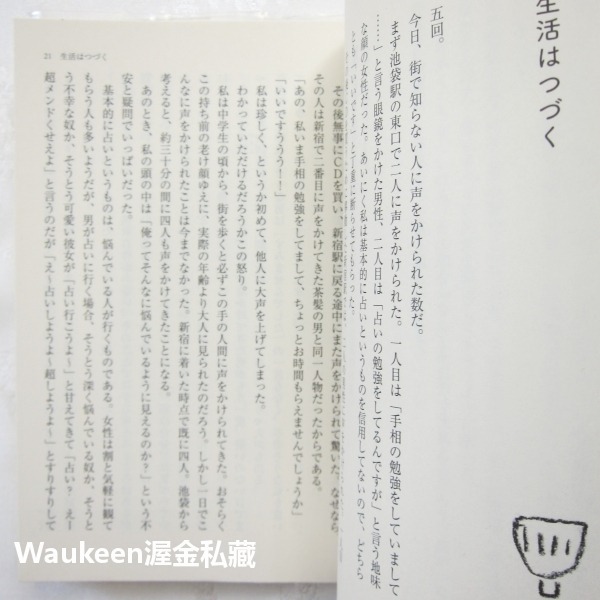 生活はつづく
五回。
今日、街で知らない人に声をかけられた数だ。
まず池袋駅の東口で二人に声をかけられた。一人目は「手相の勉強をしていまして
……」と言う眼鏡をかけた男性、二人目は「占いの勉強をしてるんですが」と言う地味
な顔の女性だった。あいにく私は基本的に占いというものを信用してないので、どちら
とも「いいです」と丁重に断らせてもらった。
21 生活はつづく
その後無事にCDを買い、新宿駅に戻る途中にまた声をかけられて驚いた。なぜなら
その人は新宿で二番目に声をかけてきた茶髪の男と同一人物だったからである。
「あの、私いま手相の勉強をしてまして、ちょっとお時間もらえませんでしょうか」
「いいですぅうう！！」
私は珍しく、というか初めて、他人に大声を上げてしまった。
わかっていただけるだろうかこの怒り。
私は中学生の頃から、街を歩くと必ずこの手の人間に声をかけられてきた。おそらく
この持ち前の老け顔ゆえに、実際の年齢より大人に見られたのだろう。しかし一日でこ
んなに声をかけられたことは今までなかった。新宿に着いた時点で既に四人。池袋から
考えると、約三十分の間に四人も声をかけてきたことになる。
あのとき、私の頭の中は「俺ってそんなに悩んでいるように見えるのか？」という不
安と疑問でいっぱいだった。
基本的に占いというものは、悩んでいる人が行くものである。女性は割と気軽に観て
もらう人も多いようだが、男が占いに行く場合、そうとう深く悩んでいる奴か、そうと
う不幸な奴か、そうとう可愛い彼女が「占い行こうよ〜」と甘えてきて「占い？　えー
超メンドくせえよ」と言うのだが「え〜占いしようよ〜超しようよ〜」とすりすりして
Waukeen渥金私藏